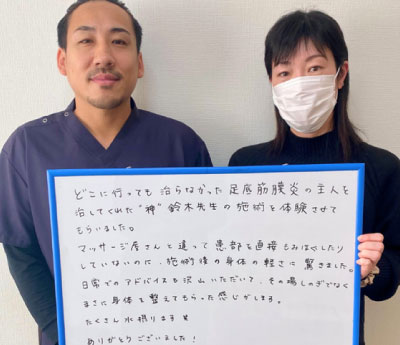 どこに行っても治らなかった足底筋膜炎の主人を
治してくれた"神"鈴木先生の施術を体験させて
もらいました。
マッサージ屋さんと違って患部を直接もみほぐしたり
していないのに、施術後の身体の軽さに驚きました。
日常でのアドバイスも沢山いただいて、その場しのぎでなく
まさに身体を整えてもらった感じがします。
たくさん水摂ります!!
ありがとうございました!